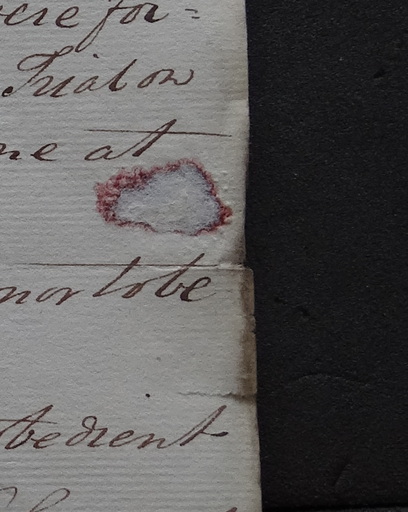 were for=
Trial on
me at
nor to be
bedient